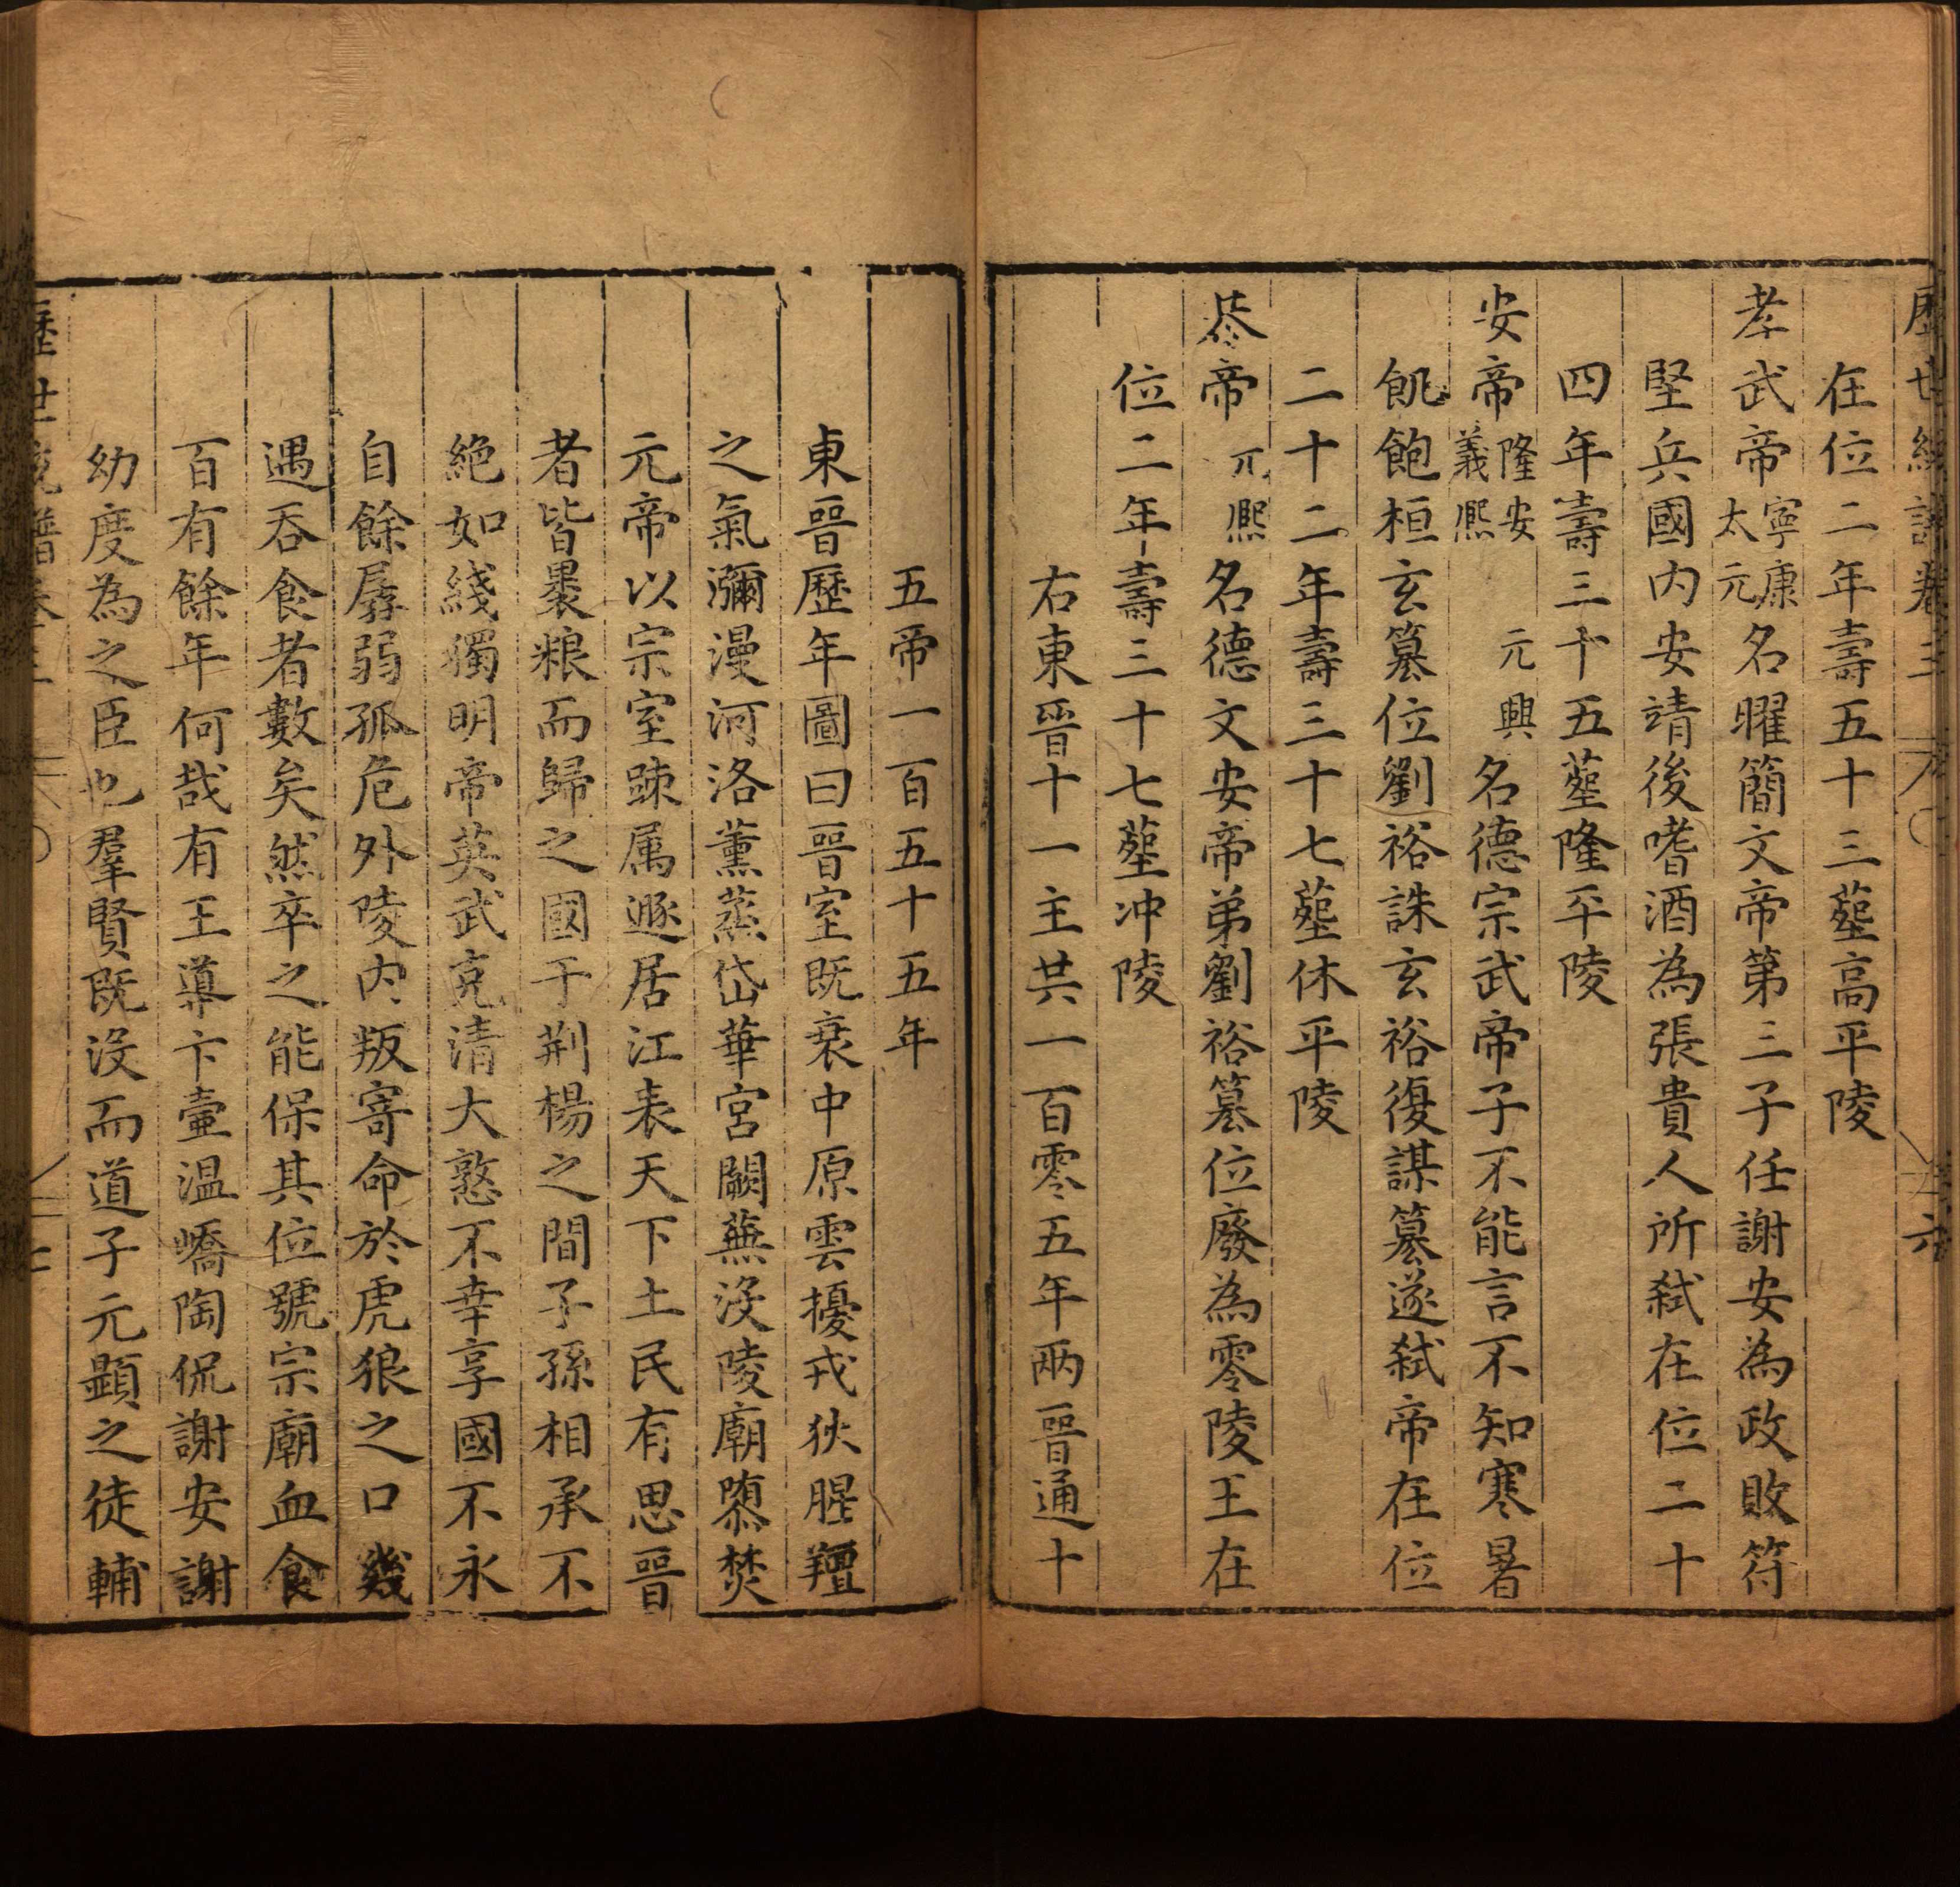 歷世統譜卷三 六
在位二年壽五十三塟高平陵
孝武帝寧康太元名曜簡文帝第三子任謝安為政敗符
堅兵國内安靖後嗜酒為張貴人所弑在位二十
四年壽三十五塟隆平陵
安帝隆安元興義熈名德宗武帝子不能言不知寒暑
飢飽桓玄篡位劉裕誅玄裕復謀篡遂弑帝在位
二十二年壽三十七塟休平陵
恭帝元熈名德文安帝弟劉裕篡位廢為零陵王在
位二年壽三十七塟冲陵
右東晉十一主共一百零五年兩晉通十
五帝一百五十五年
東晉歷年圖曰晉室既衰中原雲擾戎狄腥羶
之氣瀰漫河洛薰蒸岱華宮闕蕪没陵廟隳焚
元帝以宗室踈属遯居江表天下士民有思晉
者皆褁粮而歸之國于荆楊之間子孫相承不
絶如綫獨明帝英武克清大憝不幸享國不永
自餘孱弱孤危外陵内叛寄命於虎狼之口幾
遇吞食者數矣然卒之能保其位號宗廟血食
百有餘年何哉有王導卞壼温嶠陶侃謝安謝
幼度為之臣也羣賢既没而道子元顯之徒輔
歷世統譜卷三